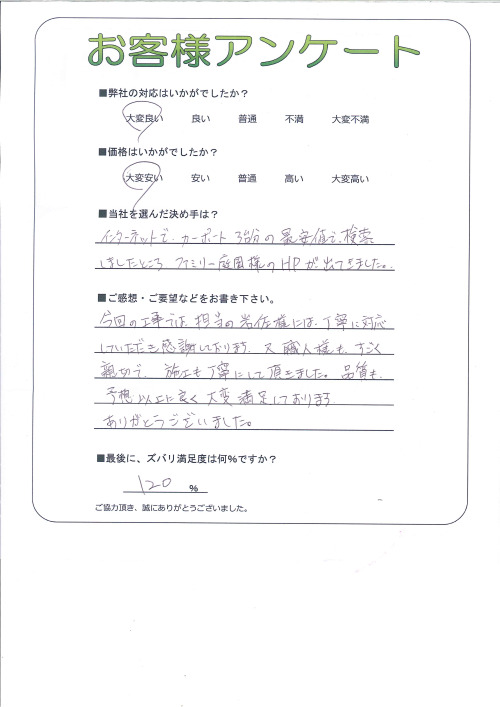 お客様アンケート
■弊社の対応はいかがでしたか？
大変良い 良い 普通 不満 大変不満
■価格はいかがでしたか？
大変安い 安い 普通 高い 大変高い
■当社を選んだ決め手は？
インターネットで、カーポート3台分の最安値で、検索
しましたところ ファミリー庭園様のHPが出てきました。
■ご感想・ご要望などをお書き下さい。
今回の工事では、担当の岩佐様には、丁寧に対応
していただき感謝しております。又職人様も、すごく
親切で、施工も丁寧にして頂きました。品質も、
予想以上に良く大変満足しております
ありがとうございました。
■最後に、ズバリ満足度は何％ですか？
120 %
ご協力頂き、誠にありがとうございました。